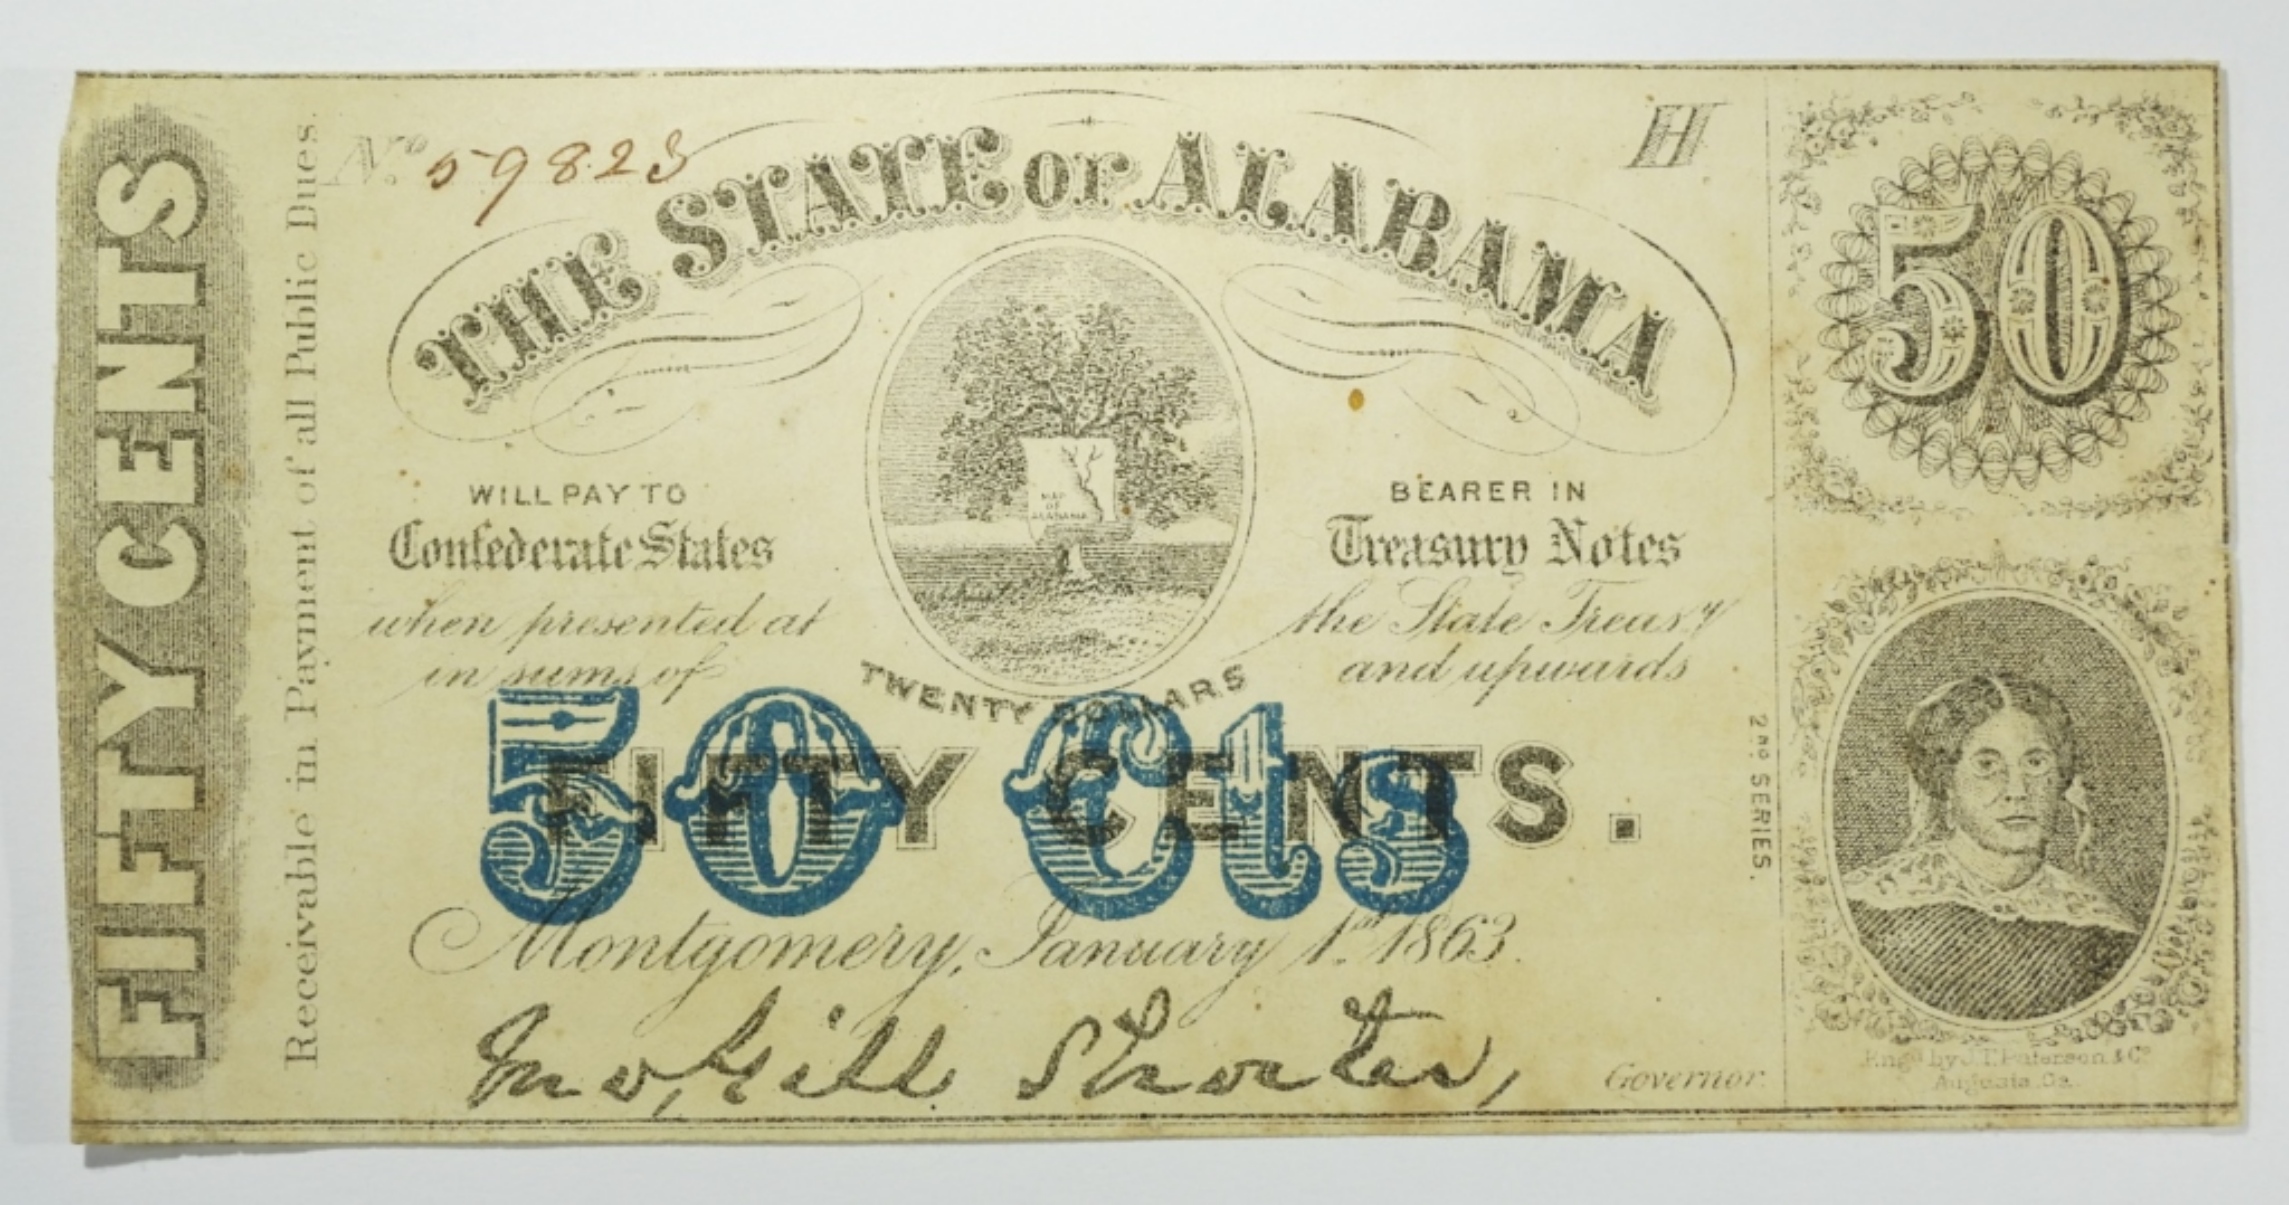 FIFTY CENTS
Receivable in Payment of all Public Dues.
No. 59823
H
THE STATE OF ALABAMA
50
MAP
OF
ALABAMA
WILL PAY TO BEARER IN
Confederate States Treasury Notes
when presented at the State Treasy
in sums of TWENTY DOLLARS and upwards
50 Cts
FIFTY CENTS.
2ND SERIES.
Montgomery, January 1st 1863.
Jno, Gill Shorter, Governor.
Engd by J.T. Paterson & Co
Augusta, Ga.